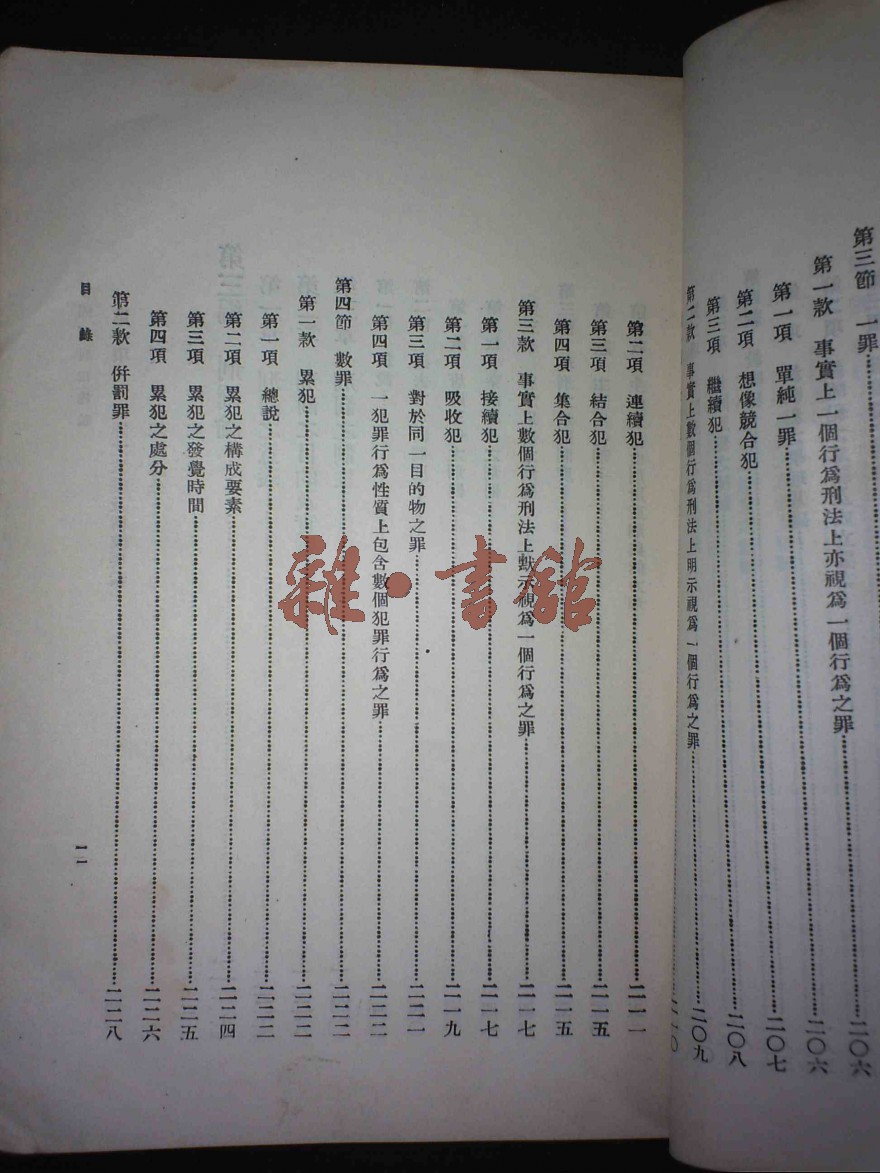 第三節　一罪……二〇六
第一款　事實上一個行爲刑法上亦視爲一個行爲之罪……二〇六
第一項　單純一罪……二〇七
第二項　想像競合犯……二〇八
第三項　繼續犯……二〇九
第二款　事實上數個行爲刑法上明示視爲一個行爲之罪……二一〇
第二項　連續犯……二一一
第三項　結合犯……二一五
第四項　集合犯……二一五
第三款　事實上數個行爲刑法上默示視爲一個行爲之罪……二一七
第一項　接續犯……二一七
第二項　吸收犯……二一九
第三項　對於同一目的物之罪……二二一
第四項　一犯罪行爲性質上包含數個犯罪行爲之罪……二二二
第四節　數罪……二二二
第一款　累犯……二二二
第一項　總說……二二二
第二項　累犯之構成要素……二二四
第三項　累犯之發覺時間……二二五
第四項　累犯之處分……二二六
第二款　併罰罪……二二八
目錄
一一
雜·書館